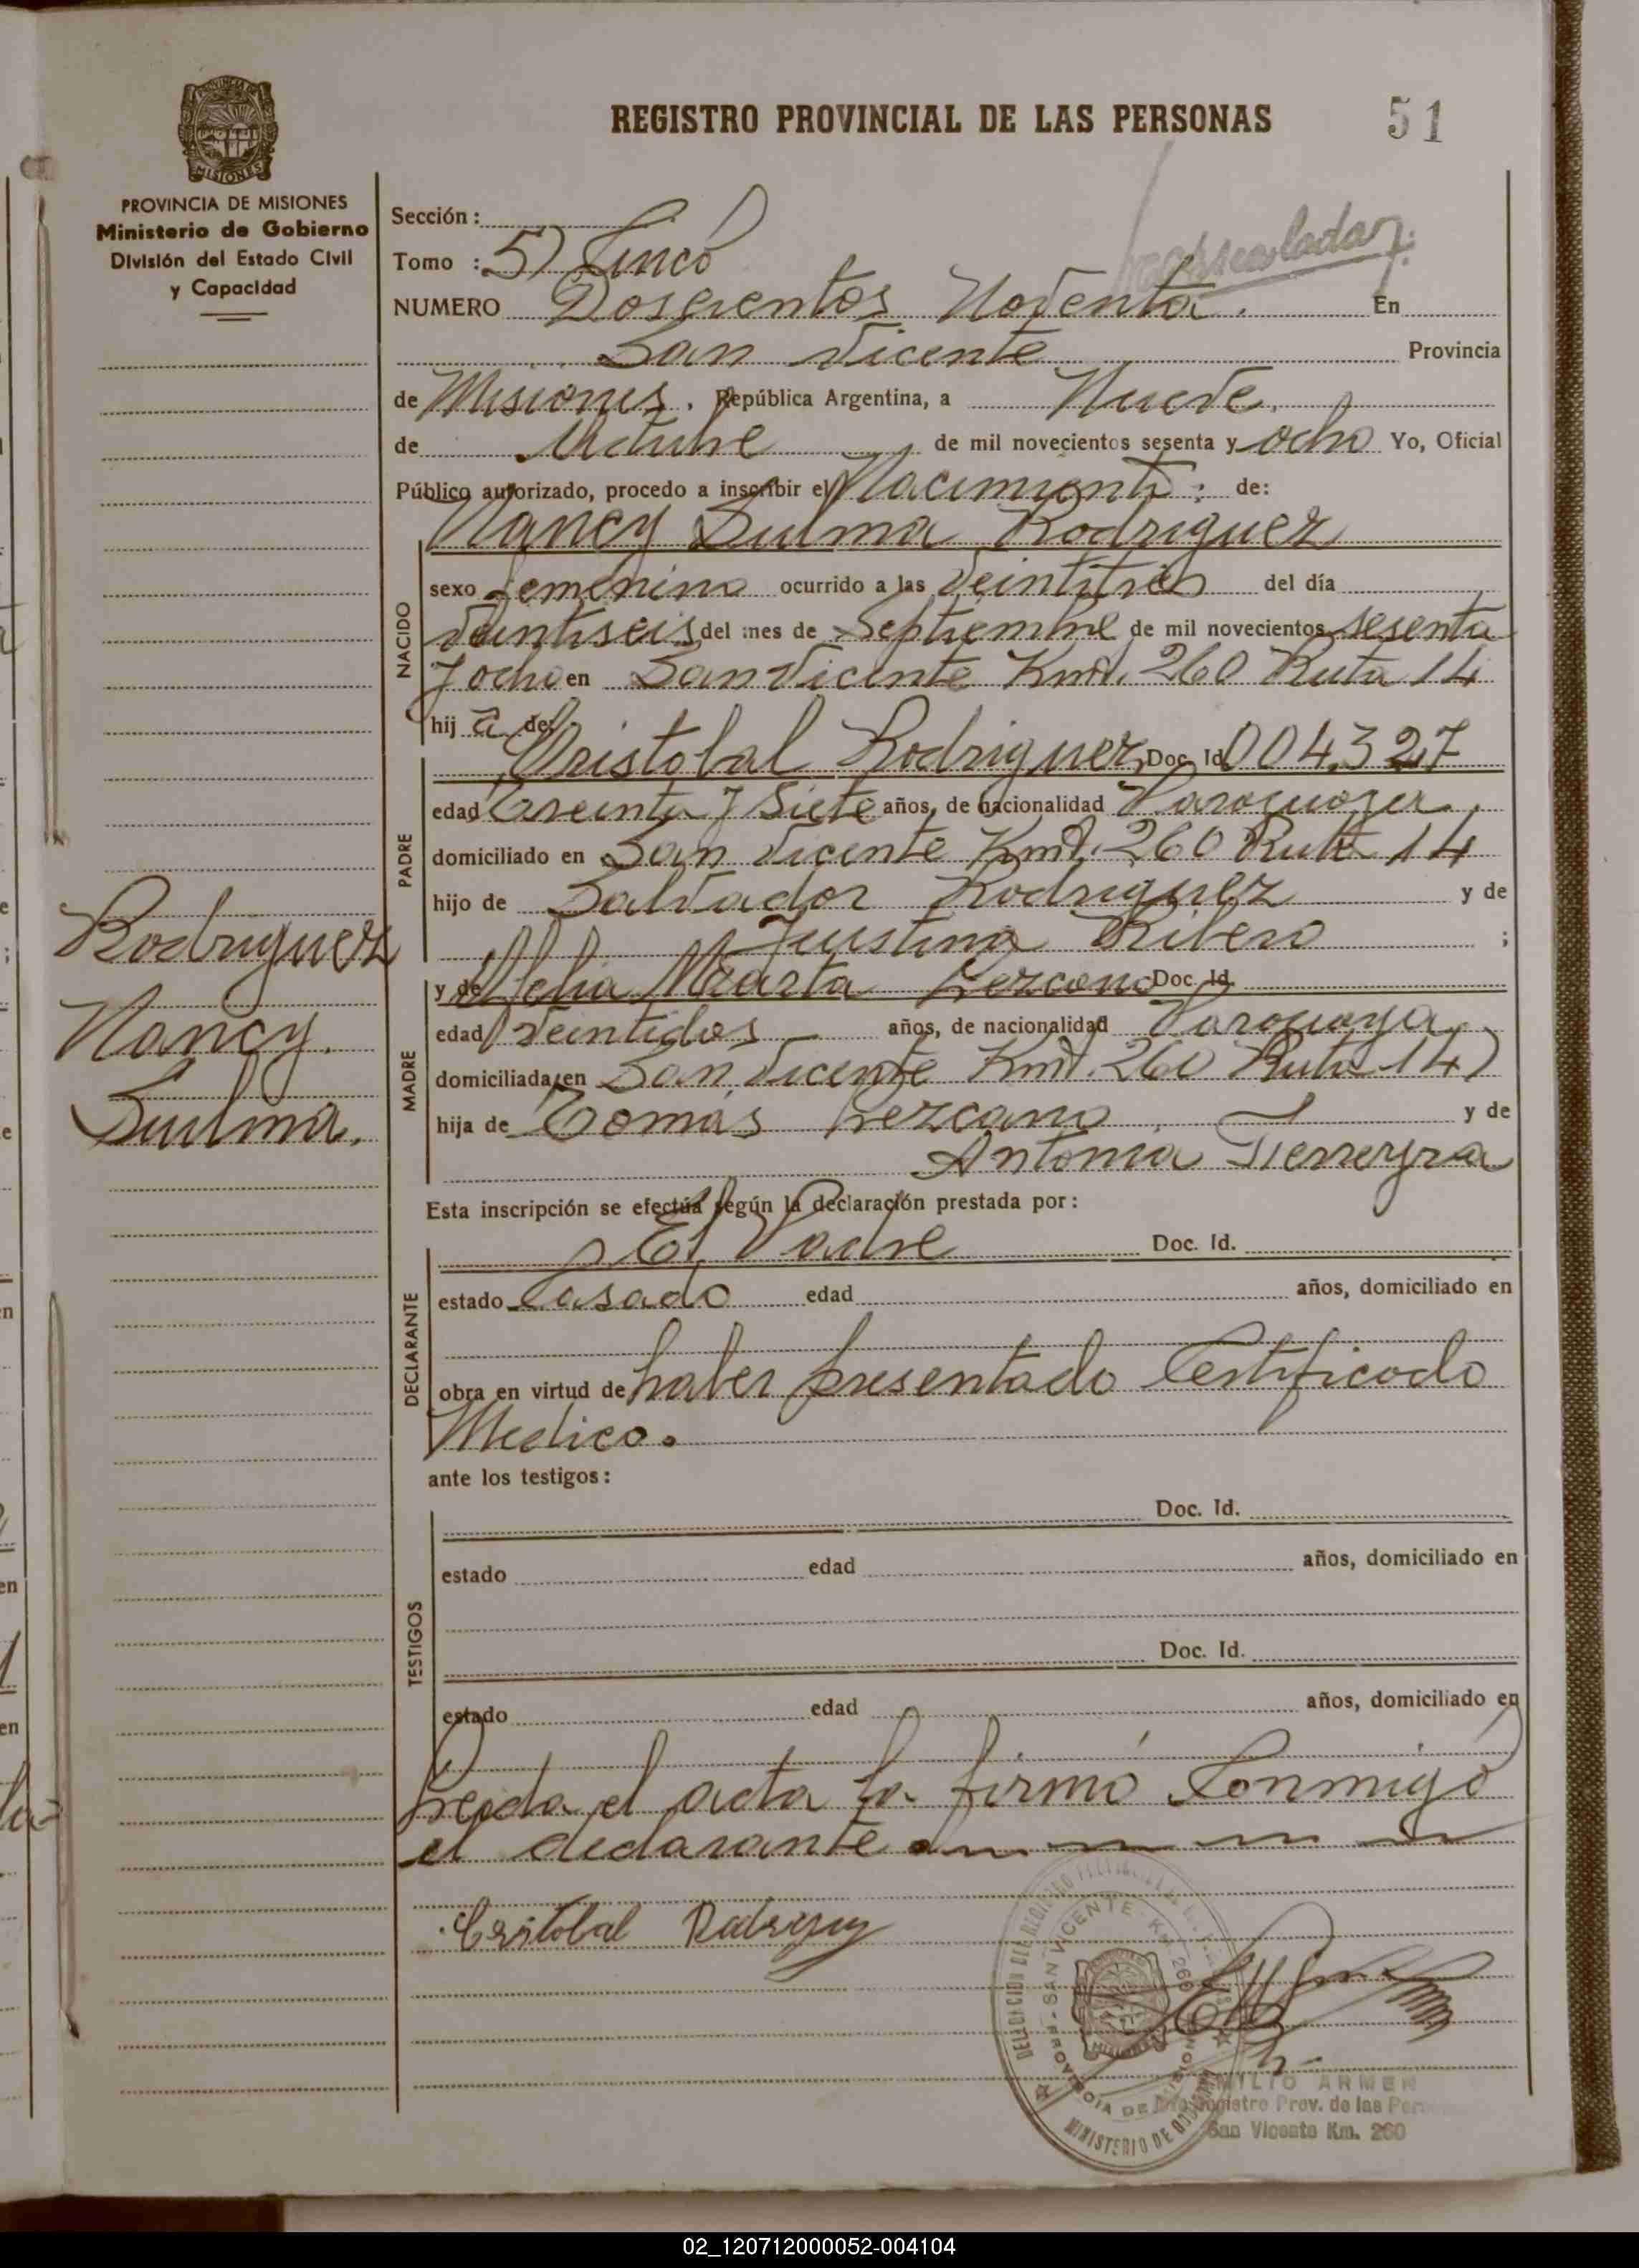 REGISTRO PROVINCIAL DE LAS PERSONAS 51
MISIONES
PROVINCIA DE MISIONES
Ministerio de Gobierno
División del Estado Civil
y Capacidad
Sección:
Tomo : 5) Cinco
NUMERO Doscientos Noventa. En
San Vicente Provincia
de Misiones. República Argentina, a Nueve
de Octubre de mil novecientos sesenta y ocho Yo, Oficial
Público autorizado, procedo a inscribir el Nacimiento: de:
Nancy Sulma Rodriguez
NACIDO
sexo femenino ocurrido a las veintitres del día
veintiseis del mes de Septiembre de mil novecientos sesenta
y ocho en San Vicente Kmt. 260 Ruta 14
hij a de:
PADRE
Cristobal Rodriguez Doc. Id. 004.327
edad Treinta y Siete años, de nacionalidad Paraguaya
domiciliado en San Vicente Kmt. 260 Ruta 14
hijo de Salvador Rodriguez y de
Justina Ribero ;
MADRE
y de Marta Lezcano Doc. Id.
edad Veintidos años, de nacionalidad Paraguaya
domiciliada en San Vicente Kmt. 260 Ruta 14
hija de Tomás Lezcano y de
Antonia
Rodriguez
Nancy
Sulma.
Esta inscripción se efectúa según la declaración prestada por:
DECLARANTE
El Padre Doc. Id.
estado Casado edad años, domiciliado en
obra en virtud de haber presentado Certificado
Medico.
ante los testigos:
TESTIGOS
Doc. Id.
estado edad años, domiciliado en
Doc. Id.
estado edad años, domiciliado en
Leida el acta la firmó Conmigo
el declarante
Cristobal
SAN VICENTE KM. 260
PROVINCIA DE MISIONES
MINISTERIO DE GOBIERNO
Registro Prov. de las
San Vicente Km. 260
02_120712000052-004104